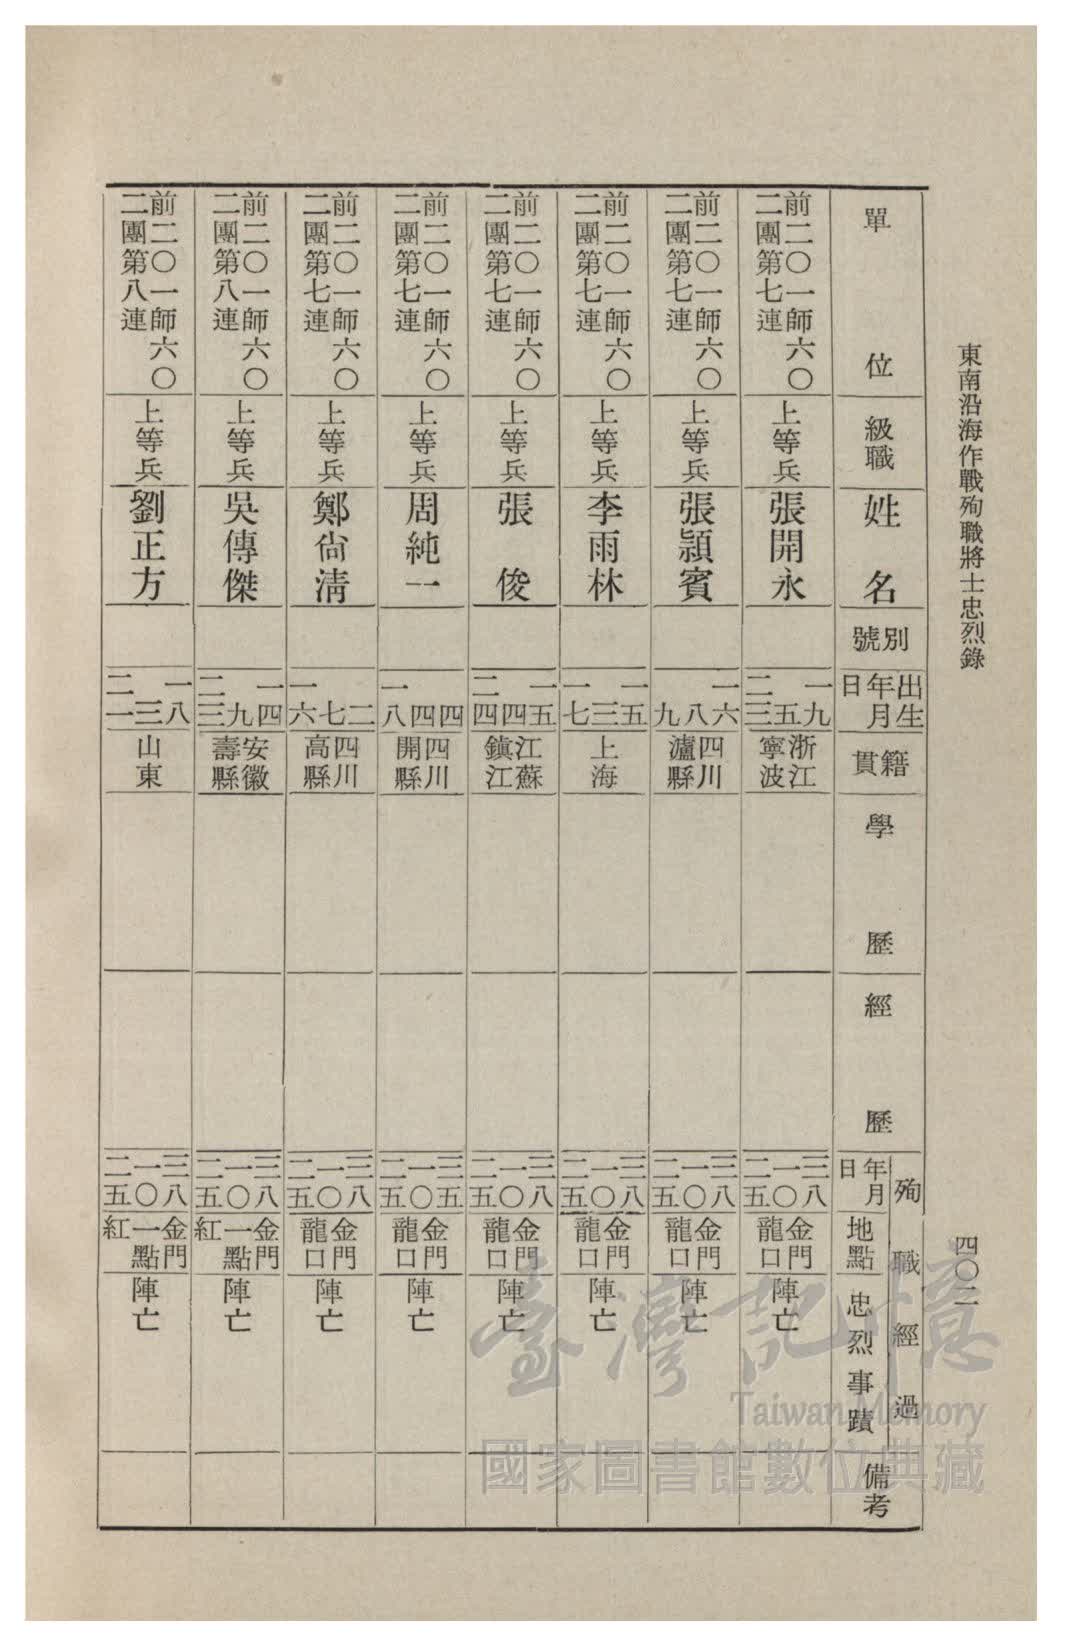 東南沿海作戰殉職將士忠烈錄
四〇二
單位
級職
姓名
別號
出生
年月
日
籍貫
學歷
經歷
殉職經過
年月
日
地點
忠烈事蹟
備考
前二〇一師六〇
二團第七連
上等兵
張開永
一九
五
二三
浙江
寧波
三八
一〇
二五
金門
龍口
陣亡
前二〇一師六〇
二團第七連
上等兵
張頴賓
一六
八
九
四川
瀘縣
三八
一〇
二五
金門
龍口
陣亡
前二〇一師六〇
二團第七連
上等兵
李雨林
一五
三
一七
上海
三八
一〇
二五
金門
龍口
陣亡
前二〇一師六〇
二團第七連
上等兵
張俊
一五
四
二四
江蘇
鎮江
三八
一〇
二五
金門
龍口
陣亡
前二〇一師六〇
二團第七連
上等兵
周純一
四
四
一八
四川
開縣
三五
一〇
二五
金門
龍口
陣亡
前二〇一師六〇
二團第七連
上等兵
鄭尙清
二
七
一六
四川
高縣
三八
一〇
二五
金門
龍口
陣亡
前二〇一師六〇
二團第八連
上等兵
吳傳傑
一四
九
二三
安徽
壽縣
三八
一〇
二五
金門
一點
紅
陣亡
前二〇一師六〇
二團第八連
上等兵
劉正方
一八
三
二一
山東
三八
一〇
二五
金門
一點
紅
陣亡
臺灣記憶
Taiwan Memory
國家圖書館數位典藏